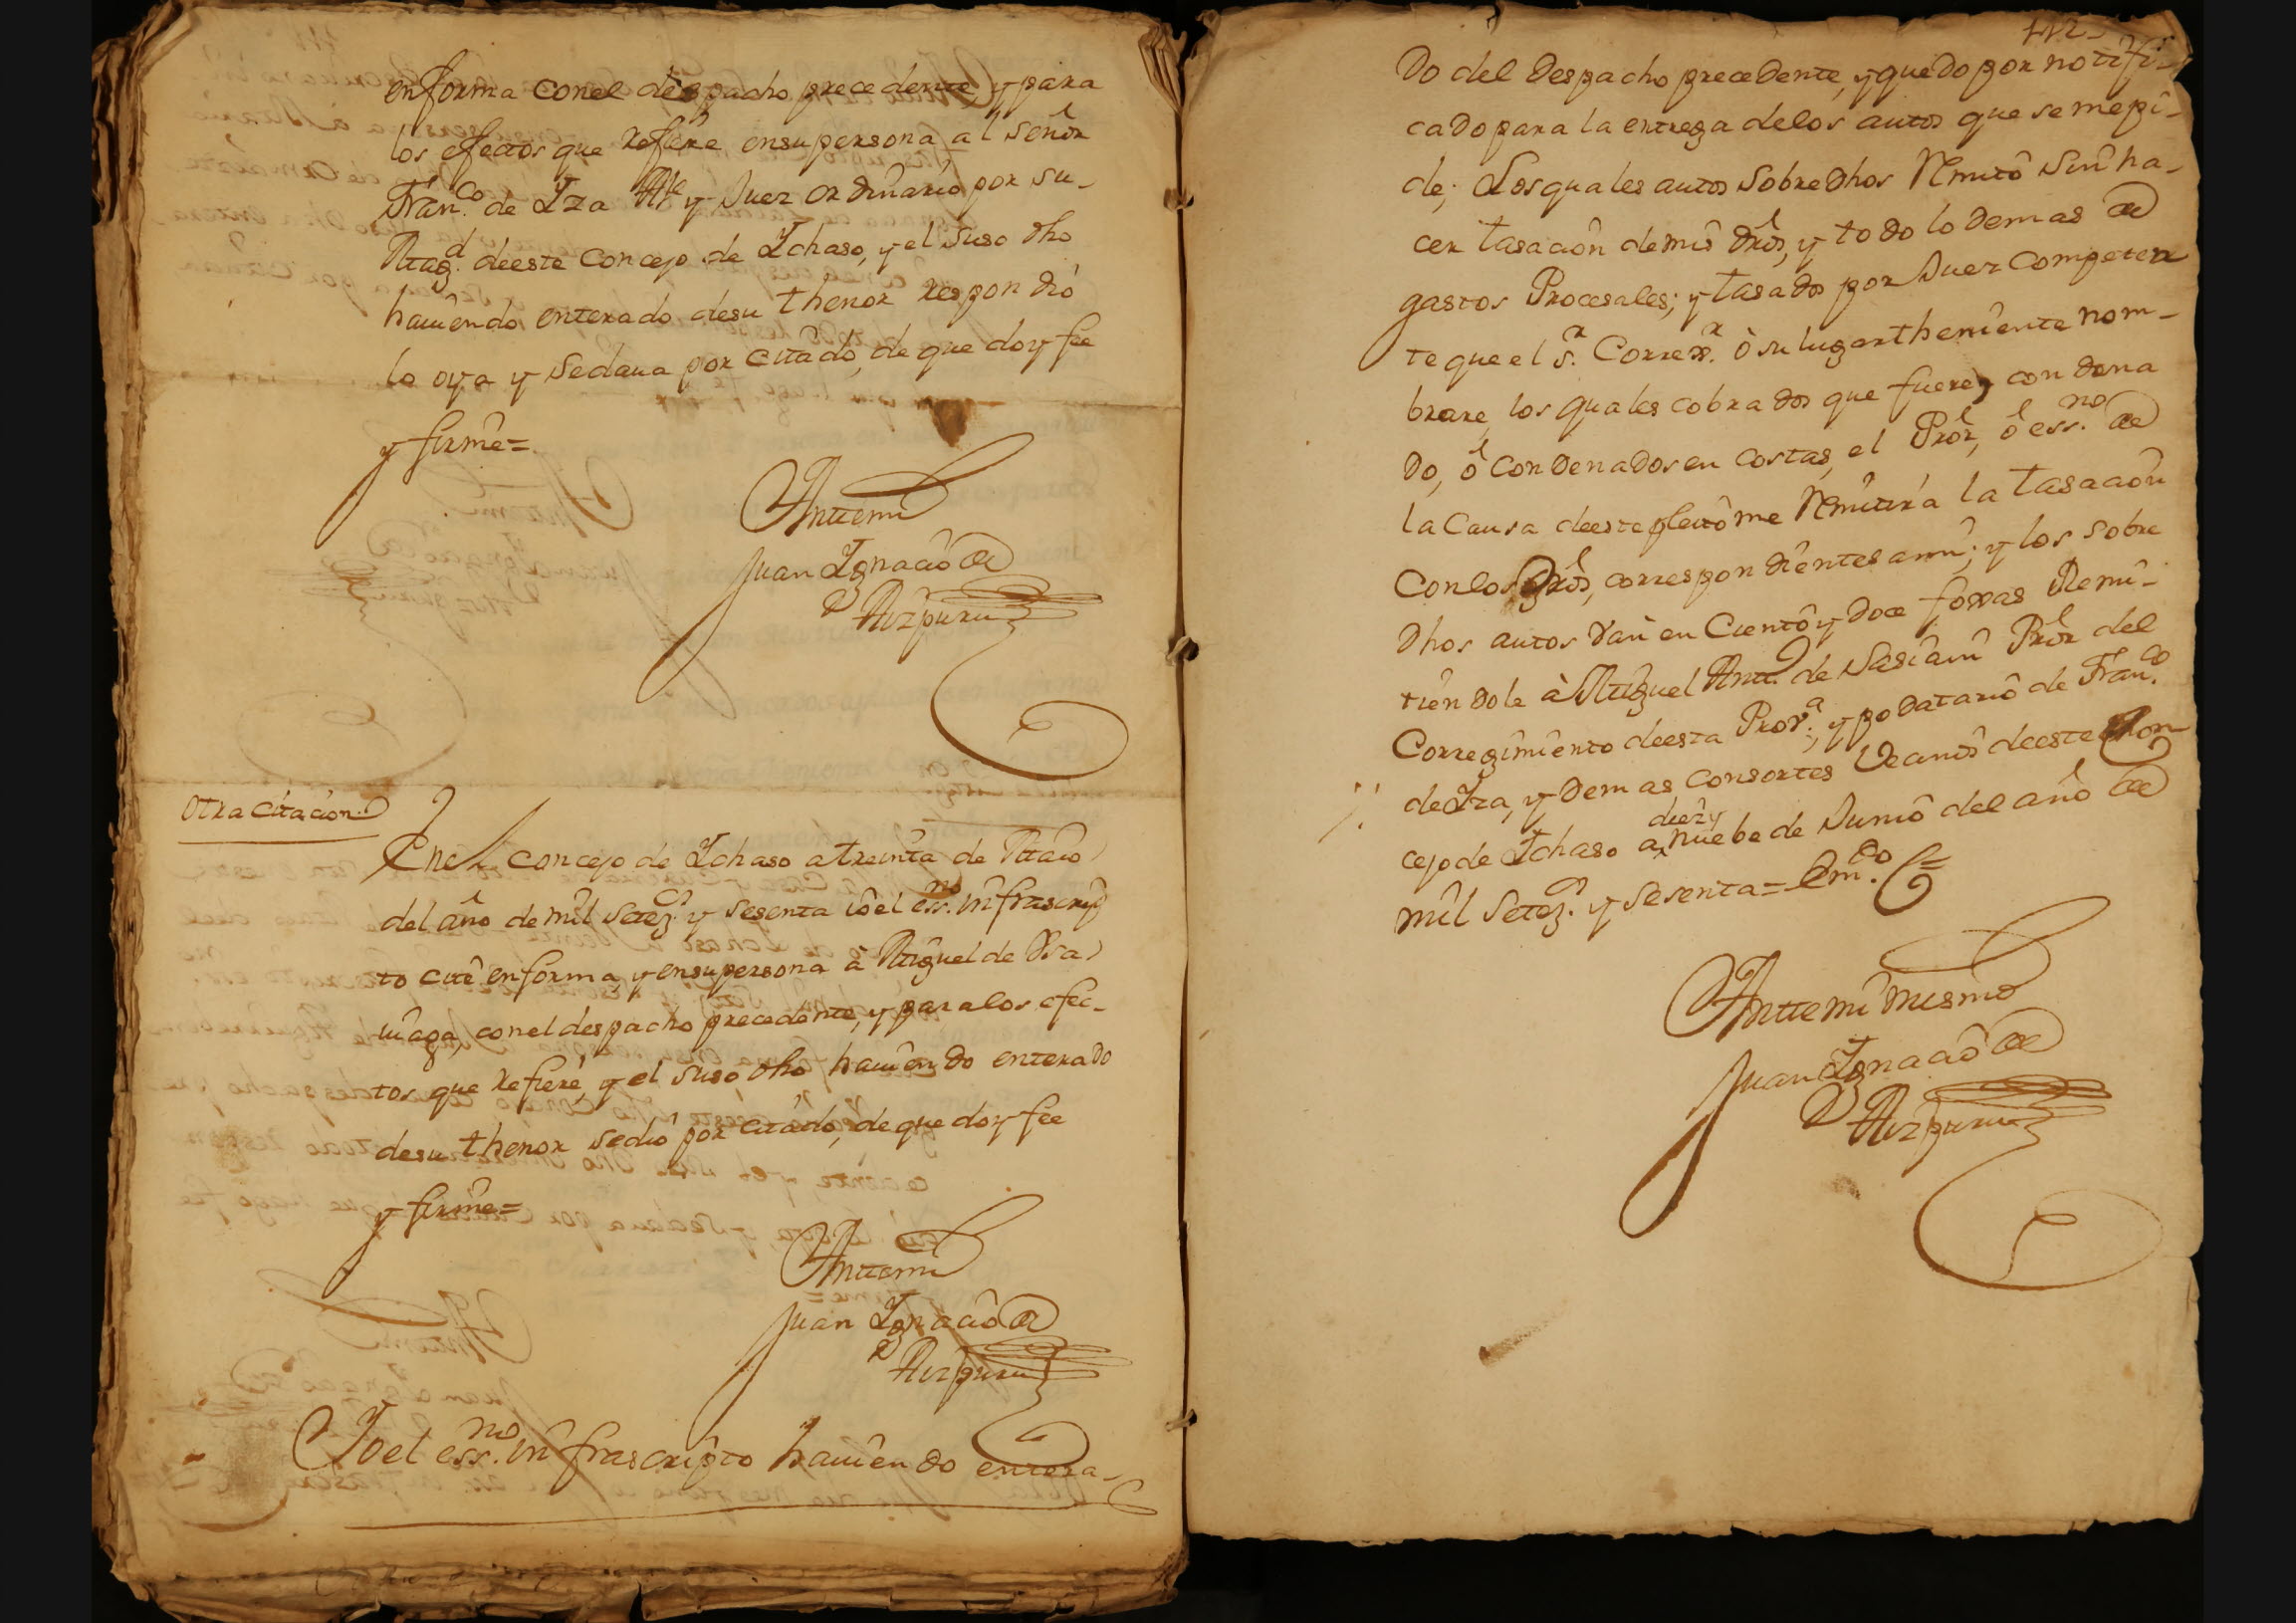 en forma con el despacho precedente, y para
los efectos que refiere en su persona al señor
Fran.co de Yza Al.e y Juez ordinario por su
Mag.d de este Concejo de Ichaso, y el suso dho
haviendo enterado de su thenor respondió
lo oya y se dava por citado, de que doy fee
y firmé=
Antemi
Juan Ygnacio de
Aizpuru
Otra citacion
En el concejo de Ichaso a treinta de Maio
del año de mil setez.s y sesenta io el ess.no infrascrip
to cité en forma, y en su persona à Miguel de
con el despacho precedente, y para los efec-
tos que refiere, y el suso dho haviendo enterado
de su thenor se dió por citado, de que doy fee
y firmé=
Antemi
Juan Ygnacio de
Aizpuru
Yo el ess.no infrascripto haviendo entera-
112
do del despacho precedente, y quedo por notifi-
cado para la entrega de los autos que se me pi-
de; Los quales autos sobre dhos Remito sin ha-
cer tasacion de mis dros, y todo lo demas de
gastos Procesales; y tasados por Juez Competen
te que el s.r Correx.r ò su lugar theniente nom-
brare, los quales cobrados que fueren con dena
do, ó Condenados en costas, el Pror, ó ess.no de
la Causa de este pleito me Remitirá la tasacion
Con los dros, correspondientes a mi; y los sobre
dhos autos van en Ciento y doce foxas Remi-
tiendole à Miguel Antt.o de Sasiain Pror del
Corregimiento de esta Prov.a, y podatario de Fran.co
de Yza, y demas consortes Vecinos de este Con
cejo de Ichaso a diez y nuebe de Junio del año de
mil Setez.s y sesenta= Em.do C=
Anttemi mismo
Juan Ygnacio de
Aizpuru